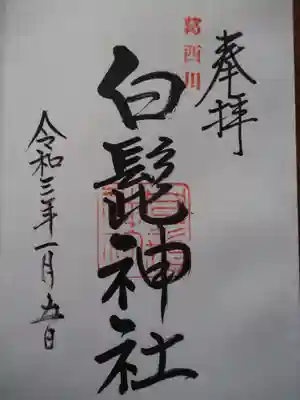 奉拝
葛西川
白髭神社
令和三年一月五日